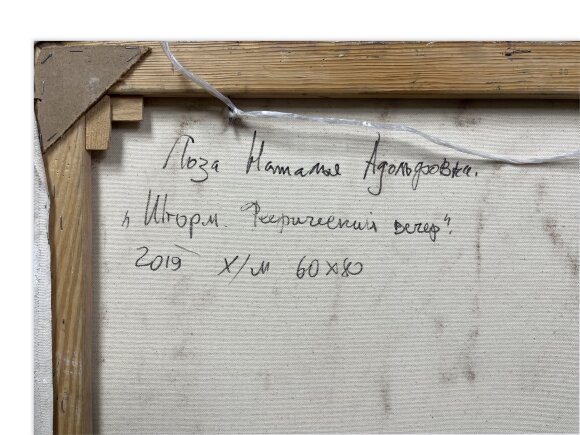 Лоза Наталья Адольфовна.
„Шторм. Феерический вечер".
2019 х/м 60х80